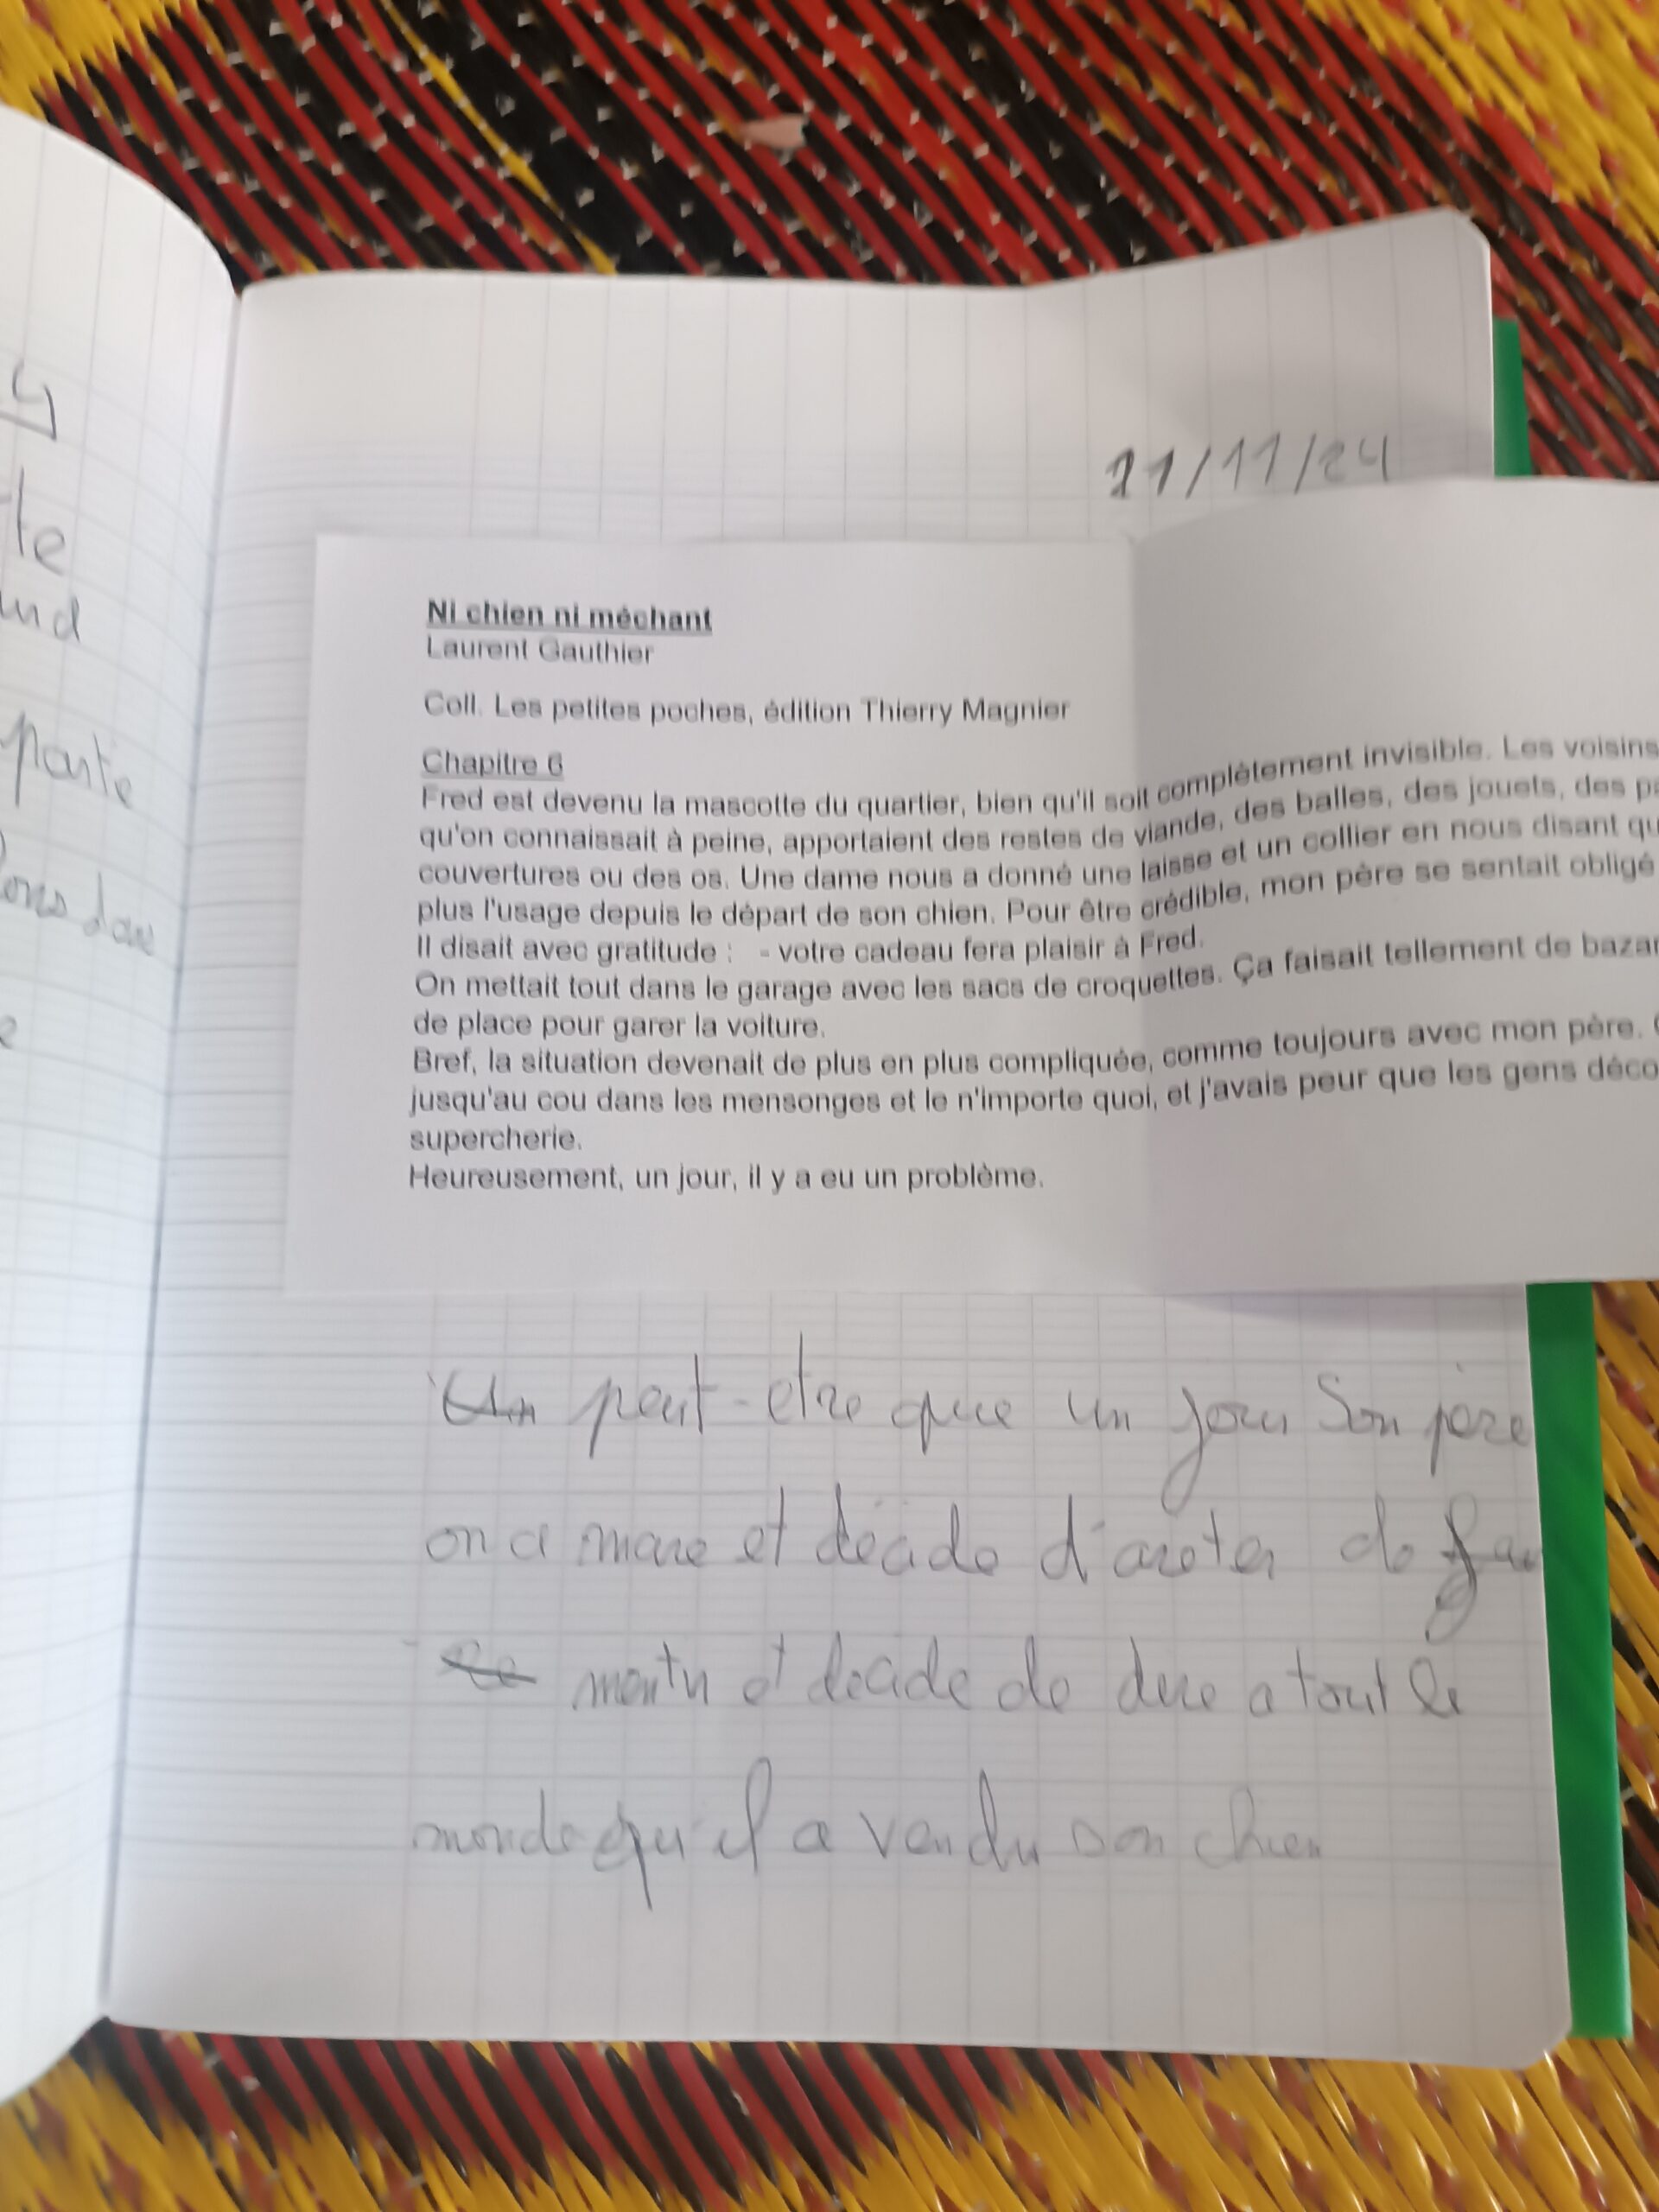 4
te
und
parte
e
21/11/24
Ni chien ni méchant
Laurent Gauthier
Coll. Les petites poches, édition Thierry Magnier
Chapitre 6
Fred est devenu la mascotte du quartier, bien qu'il soit complètement invisible. Les voisins
qu'on connaissait à peine, apportaient des restes de viande, des balles, des jouets, des pa
couvertures ou des os. Une dame nous a donné une laisse et un collier en nous disant qu
plus l'usage depuis le départ de son chien. Pour être crédible, mon père se sentait obligé
Il disait avec gratitude : - votre cadeau fera plaisir à Fred.
On mettait tout dans le garage avec les sacs de croquettes. Ça faisait tellement de bazar
de place pour garer la voiture.
Bref, la situation devenait de plus en plus compliquée, comme toujours avec mon père.
jusqu'au cou dans les mensonges et le n'importe quoi, et j'avais peur que les gens déco
supercherie.
Heureusement, un jour, il y a eu un problème.
Un peut-etre que un jour Son père
on a mare et décide d'areter de
mentir et decide de dire a tout le
monde qu'il a vendu son chien